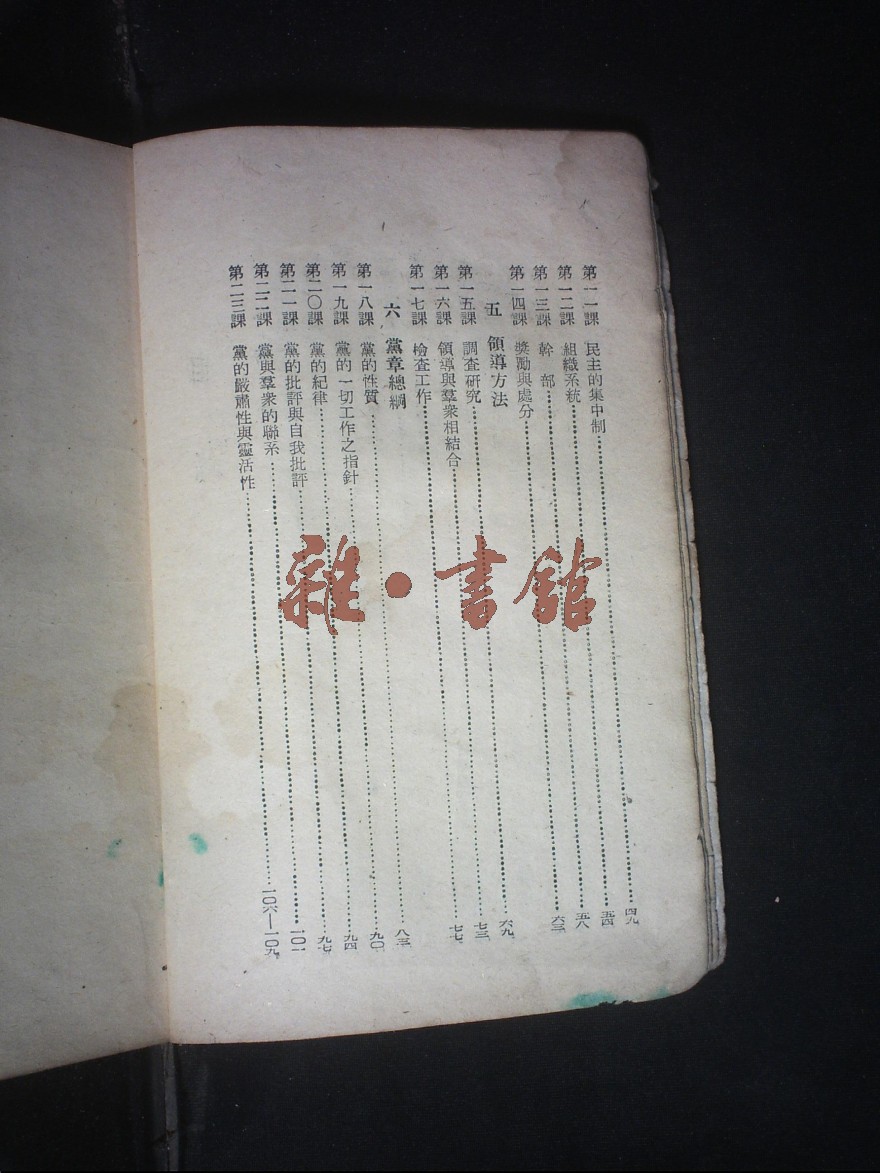 第一一課 民主的集中制……四九
第一二課 組織系統……五四
第一三課 幹 部……五八
第一四課 獎勵與處分……六三
五 領導方法
第一五課 調查研究……六九
第一六課 領導與羣衆相結合……七三
第一七課 檢查工作……七七
六 黨章總綱
第一八課 黨的性質……八三
第一九課 黨的一切工作之指針……九〇
第二〇課 黨的紀律……九四
第二一課 黨的批評與自我批評……九七
第二二課 黨與羣衆的聯系……一〇一
第二三課 黨的嚴肅性與靈活性……一〇六—一〇九
雜·書館